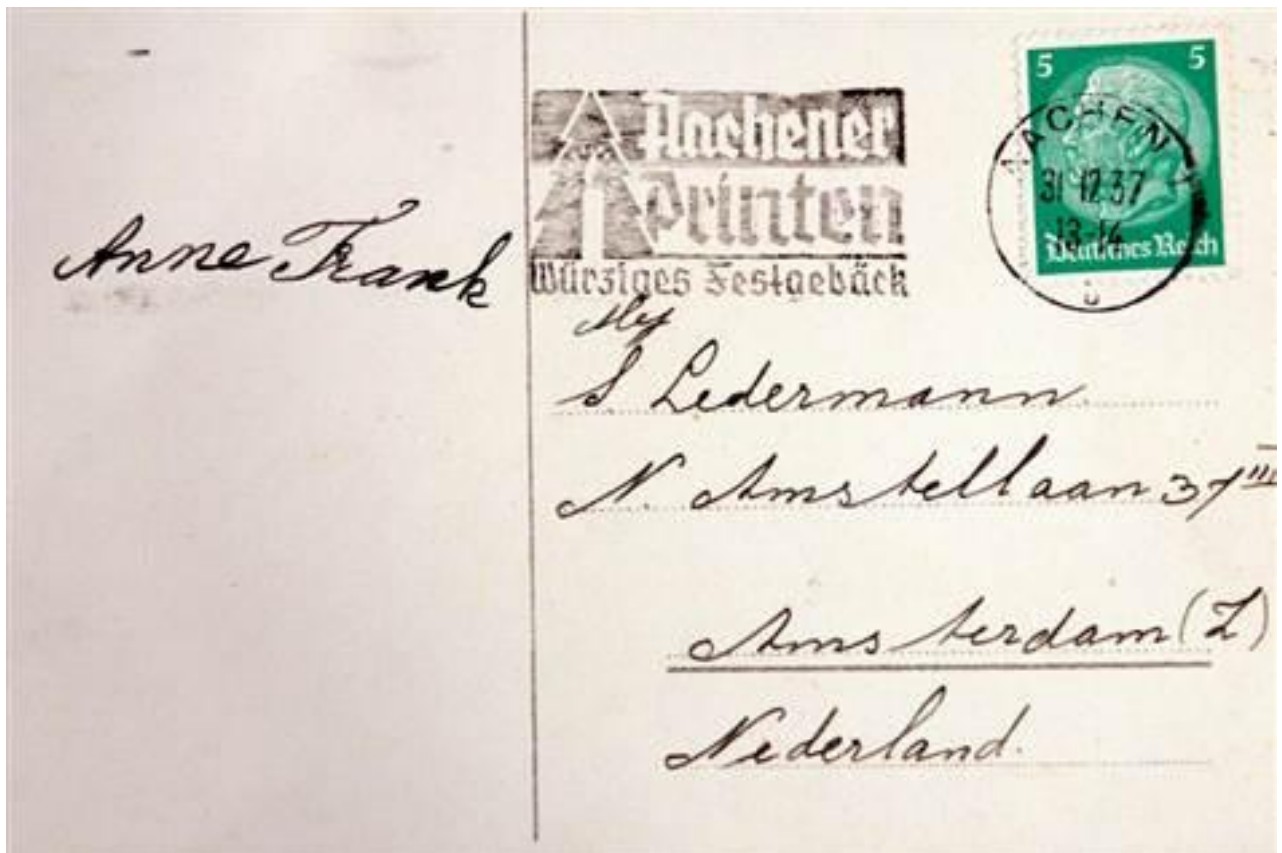 Anne Frank
Aachener
Printen
Würziges Festgebäck
5 5
AACHEN 1
31.12.37
13-14
Deutsches Reich
S. Ledermann
N. Amstellaan 37 III
Amsterdam (Z)
Nederland.